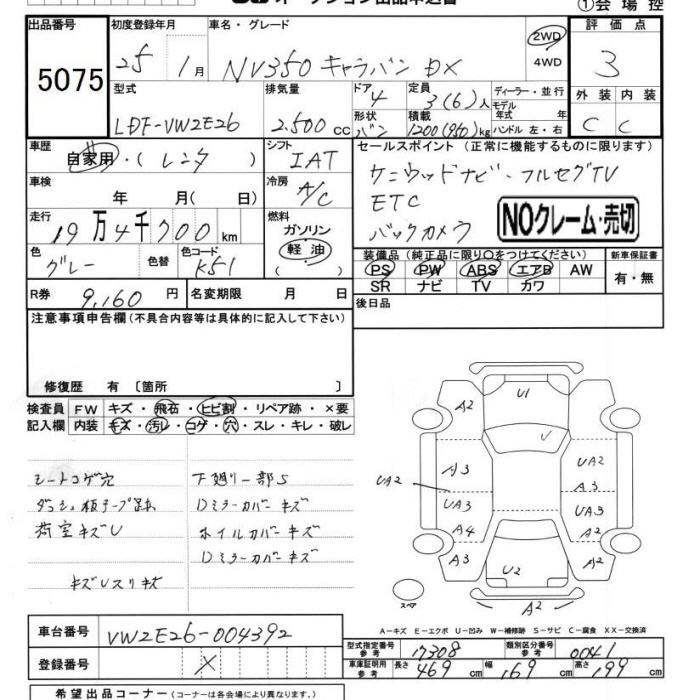 オークション出品申込書
①会場控
出品番号 5075
初度登録年月 25年 1月
車名・グレード NV350キャラバン DX
2WD
4WD
評価点 3
型式 LDF-VW2E26
排気量 2.500cc
ドア 4 形状 バン
定員 3(6)人 積載 1200(950)kg
ディーラー・並行
モデル年式 年式
ハンドル 左・右
外装 C 内装 C
車歴 自家用・(レンタ)
シフト IAT
セールスポイント (正常に機能するものに限ります)
ケンウッドナビ・フルセグTV
ETC
バックカメラ
NOクレーム・売切
車検 年 月( 日)
冷房 A/C
走行 19万4千700km
燃料 ガソリン 軽油 ( )
色 グレー 色替 色コード K51
装備品 (純正品に限り○をつけてください) 新車保証書
PS PW ABS エアB AW 有・無
SR ナビ TV カワ
R券 9,160円 名変期限 月 日
後日品
注意事項申告欄(不具合内容等は具体的に記入して下さい)
修復歴 有 〔箇所 〕
検査員 FW キズ・飛石・ヒビ割・リペア跡・×要
記入欄 内装 キズ・汚レ・コゲ・穴・スレ・キレ・破レ
シートコゲ穴 下廻り一部S
Dミラーカバーキズ
荷室キズU ホイルカバーキズ
Dミラーカバーキズ
キズUスリキズ
U1
A2
U
A3 UA2
UA2 A3
UA3 UA3
A4 A2
A3 U2 A2
A2
スペア
A-キズ E-エクボ U-凹み W-補修跡 S-サビ C-腐食 XX-交換済
車台番号 VW2E26-004392
型式指定番号 参考 17308 類別区分番号 参考 0041
登録番号 ×
車庫証明用 参考 長さ 469cm 幅 169cm 高さ 199cm
希望出品コーナー (コーナーは各会場により異なります。)